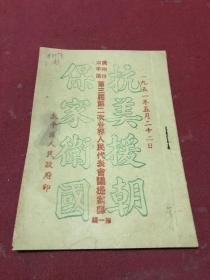 抗美援朝
保家衛國
一九五一年五月二十二日
廣州市
太平區
第三屆第二次各界人民代表會議提案錄
第一輯
太平區人民政府印